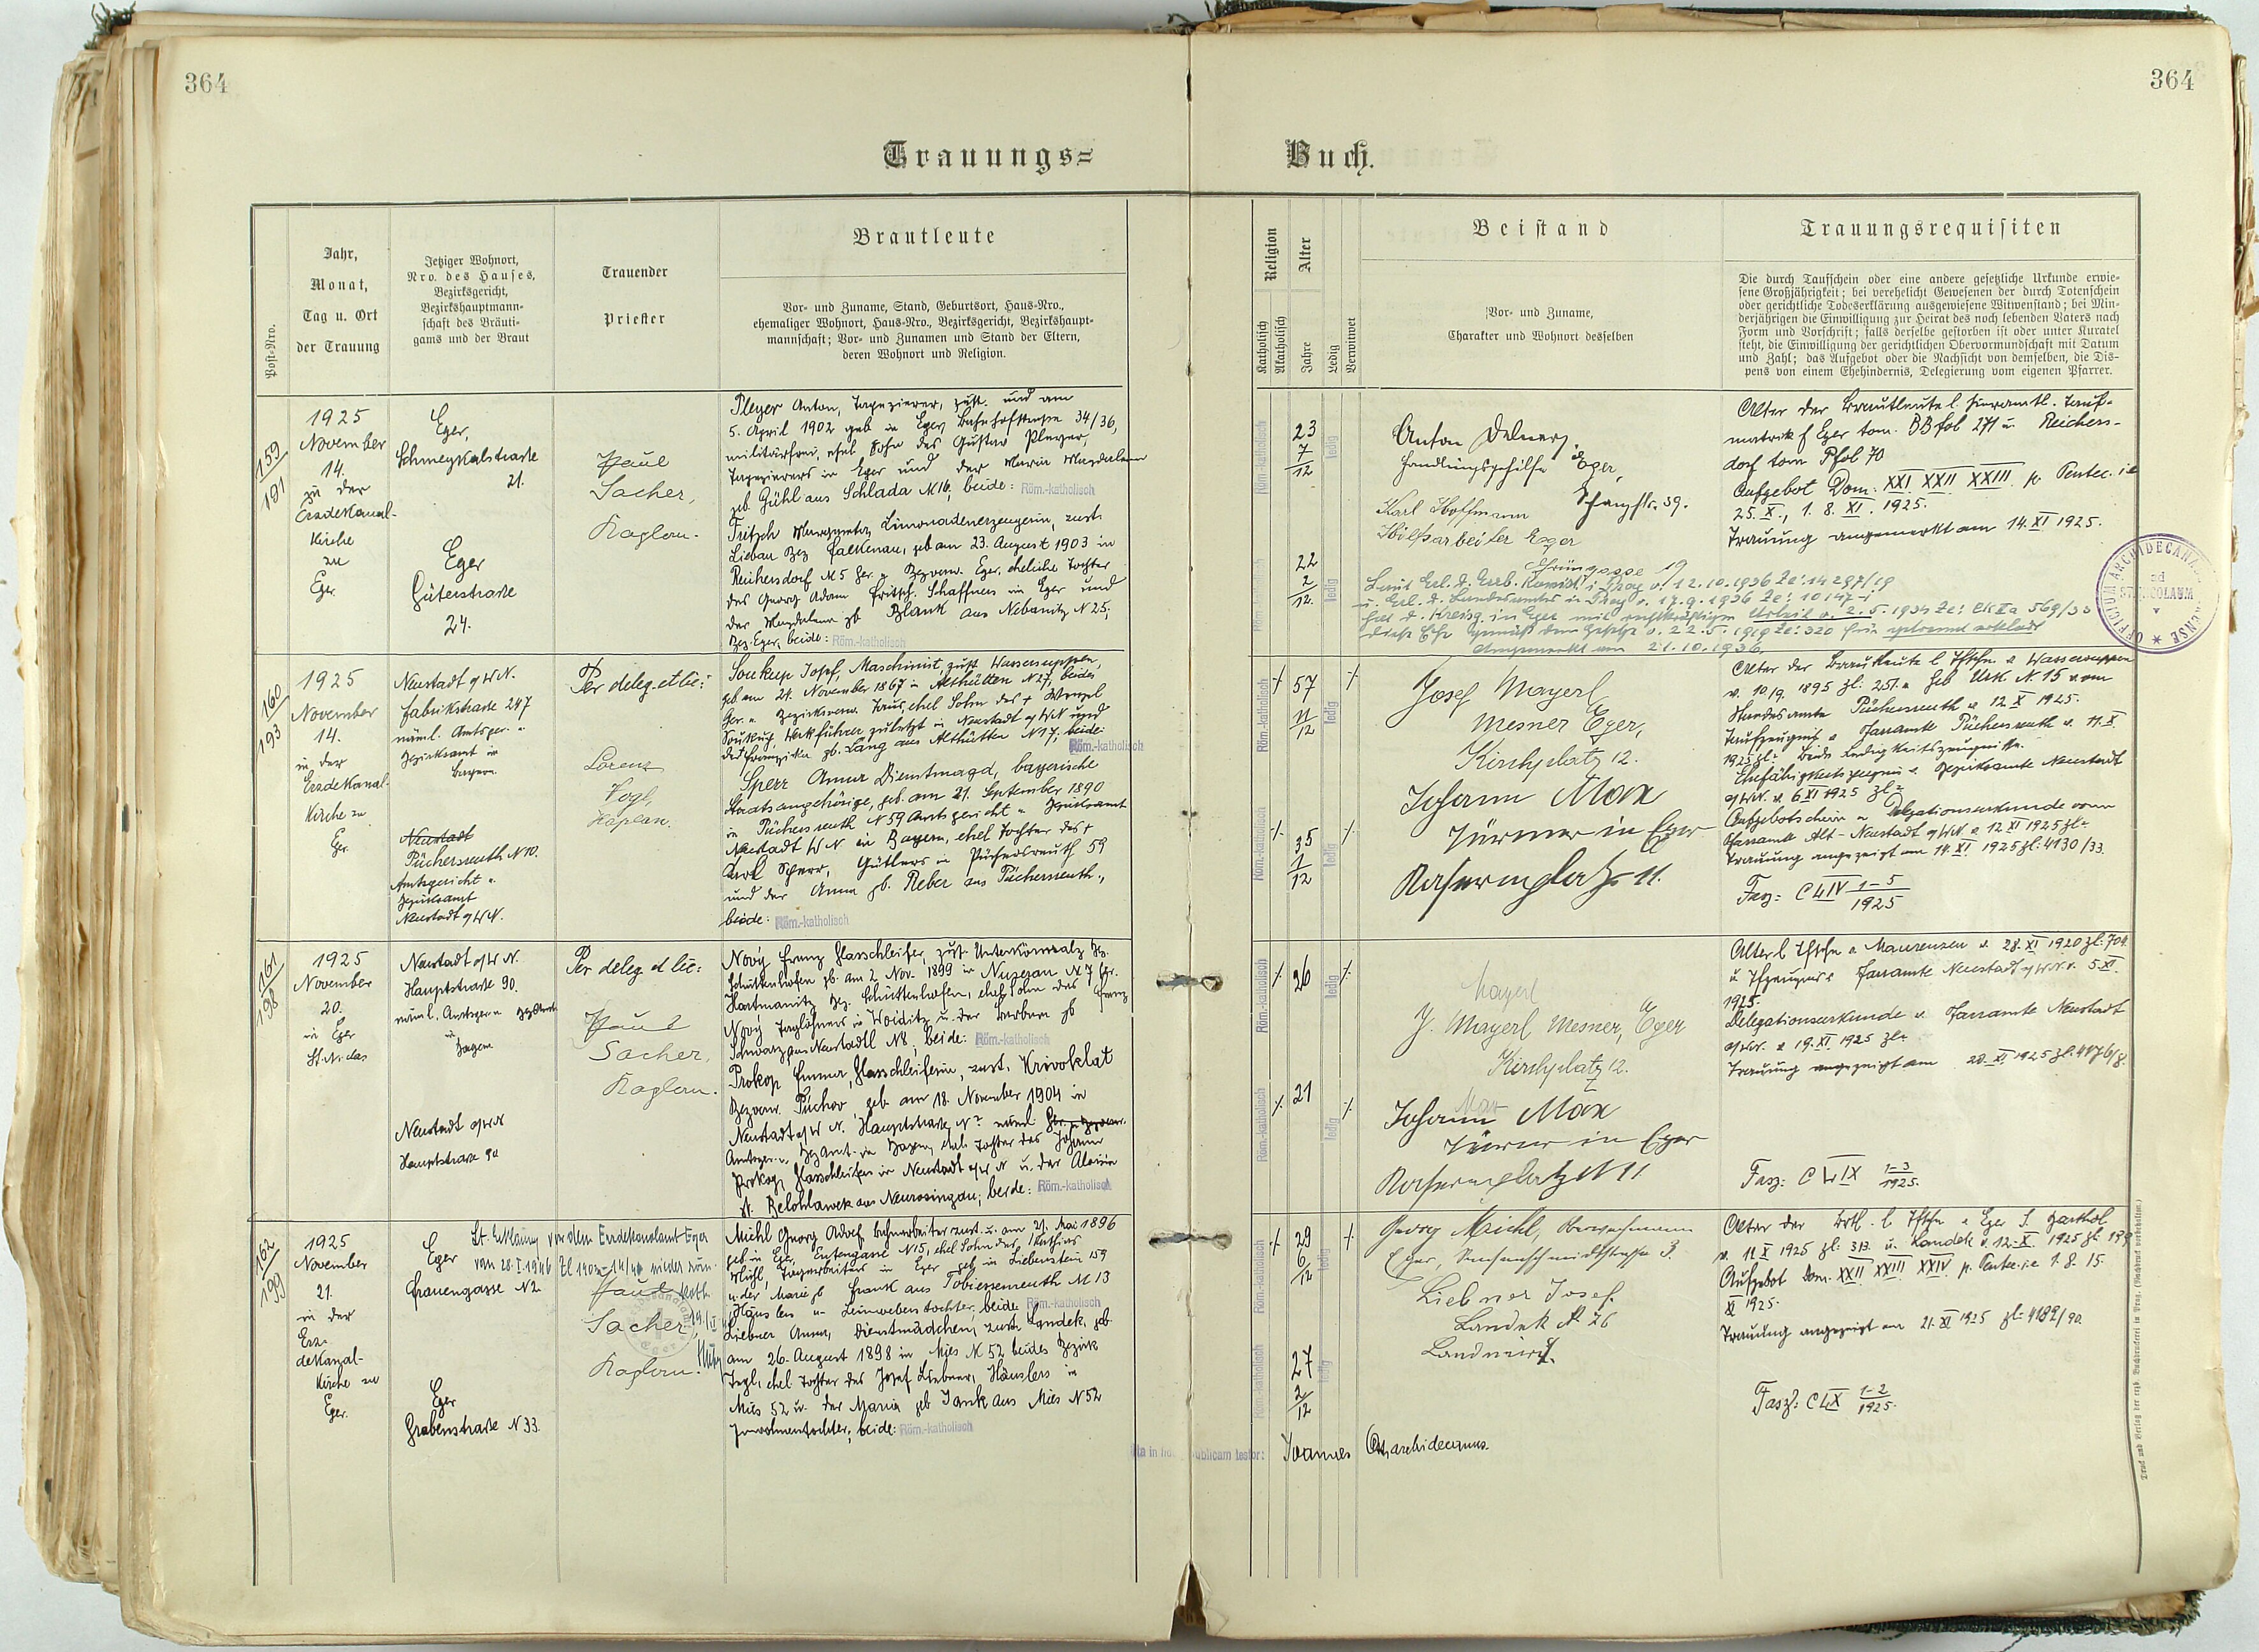 364
364
Trauungs=
Buch.
Post-Nro.
Jahr,
Monat,
Tag u. Ort
der Trauung
Jetziger Wohnort,
Nro. des Hauses,
Bezirksgericht,
Bezirkshauptmann-
schaft des Bräuti-
gams und der Braut
Trauender
Priester
Brautleute
Vor- und Zuname, Stand, Geburtsort, Haus-Nro.,
ehemaliger Wohnort, Haus-Nro., Bezirksgericht, Bezirkshaupt-
mannschaft; Vor- und Zunamen und Stand der Eltern,
deren Wohnort und Religion.
Religion
Katholisch
Akatholisch
Alter
Jahre
Ledig
Verwitwet
Beistand
Vor- und Zuname,
Charakter und Wohnort desselben
Trauungsrequisiten
Die durch Taufschein oder eine andere gesetzliche Urkunde erwie-
sene Großjährigkeit; bei verehelicht Gewesenen der durch Totenschein
oder gerichtliche Todeserklärung ausgewiesene Witwenstand; bei Min-
derjährigen die Einwilligung zur Heirat des noch lebenden Vaters nach
Form und Vorschrift; falls derselbe gestorben ist oder unter Kuratel
steht, die Einwilligung der gerichtlichen Obervormundschaft mit Datum
und Zahl; das Aufgebot oder die Nachsicht von demselben, die Dis-
pens von einem Ehehindernis, Delegierung vom eigenen Pfarrer.
159
191
1925
November
14.
zu der
Erzdekanal-
Kirche
zu
Eger.
Eger,
Schmeykalstrasse
21.
Eger
Güterstrasse
24.
Paul
Sacher,
Kaplan.
Pleyer Anton, Tapezierer, zust. und am
5. April 1902 geb in Eger, Bahnhofstrasse 34/36,
militärfrei, ehel Sohn des Gustav Pleyer,
Tapezierers in Eger und der Maria Magdalena
geb. Gühl aus Schlada N 16, beide: Röm.-katholisch
Fritsch Margareta, Limonadenerzeugerin, zust.
Liebau Bez Falkenau, geb am 23. August 1903 in
Reichersdorf N 5 Ger. u Bezverw. Eger, eheliche Tochter
des Georg Adam Fritsch, Schaffners in Eger und
der Magdalena gb Blank aus Nebanitz N 25,
Bez. Eger, beide: Röm.-katholisch
Röm.-katholisch
23
7
12
ledig
22
2
12.
ledig
Anton
Handlungsgehilfe Eger,
Schanzstr. 39.
Karl Hoffmann
Hilfsarbeiter Eger
Grüngasse 19
u. Erl. d. Landesamtes in Prag v. 17.9.1936 Ze: 10147-i
hat d. Kreisg. in Eger mit rechtskräftigem Urteil v. 2.5.1934
diese Ehe gemäß dem Gesetze v. 22.5.1919 Ze: 320 für getrennt erklärt
Angemerkt am 21.10.1936.
Alter der Brautleute l. hieramtl. Tauf-
matrik f Eger tom. BB fol 271 u. Reichers-
dorf tom P fol 70
Aufgebot Dom. XXI XXII XXIII p. Pentec. i.e
25. X., 1. 8. XI. 1925.
Trauung angemerkt am 14. XI 1925.
160
193
1925
November
14.
in der
Erzdekanal-
Kirche zu
Eger.
Neustadt a/WN.
Fabrikstrasse 247
näml. Amtsger. u
Bezirksamt in
Bayern.
Neustadt
Püchersreuth N 10.
Amtsgericht u.
Bezirksamt
Neustadt a/WN.
Per deleg. et lic:
Lorenz
Vogl,
Kaplan.
Soukup Josef, Maschinist, zust Wassersuppen,
geb. am 21. November 1867 in Althütten N 27, beides
Ger. u Bezirksverw. Taus, ehel Sohn des + Wenzel
Soukup, Werkführer zuletzt in Neustadt a/WN und
der Franziska gb. Lang aus Althütten N 17; beide: Röm.-katholisch
Sperr Anna Dienstmagd, bayerische
Staatsangehörige, geb. am 21. September 1890
in Püchersreuth N 59 Amtsgericht u Bezirksamt
Neustadt WN in Bayern, ehel Tochter des +
Karl Sperr, Gütlers in Püchersreuth 59
und der Anna gb. Reber aus Püchersreuth,
beide: Röm.-katholisch
57
11
12
35
1
12
Josef Mayerl
Mesner Eger,
Kirchplatz 12.
Johann Max
Türmer in Eger
Kasernplatz 11.
Alter der Brautleute l Tfschn. v Wassersuppen
v. 10/9. 1895 Zl: 251 u Geb Urk N 15 vom
Standesamte Püchersreuth v. 12 X 1925.
Taufzeugnis v Pfarramte Püchersreuth v. 11. X
1925 zl= beide Ledigkeitszeugnisse.
Ehefähigkeitszeugnis v. Bezirksamte Neustadt
a/WN. v. 6 XI 1925 zl=
Aufgebotschein u Delegationsurkunde vom
Pfarramte Alt-Neustadt a/WN v 12 XI 1925 zl=
Trauung angezeigt am 14. XI 1925 zl: 4130/33.
Fasz= C LIV 1-5
1925
161
198
1925
November
20.
in Eger
St. Niclas
Neustadt a/W N.
Hauptstrasse 90.
näml. Amtsger u BezAmt
in
Bayern
Neustadt a/WN
Hauptstrasse 90
Per deleg et lic:
Paul
Sacher,
Kaplan.
Nový Franz Glasschleifer, zust Unterkörnsalz Bz.
Schüttenhofen gb. am 2. Nov. 1899 in Nuserau N 7 Gr.
Hartmanitz Bez. Schüttenhofen, ehel Sohn des Franz
Nový Taglöhners in Woiditz u. der Barbara gb
Schwarz aus Neustadtl N 8; beide: Röm.-katholisch
Prokop Emma, Glasschleiferin, zust. Krivoklat
Bezverw. Púchov geb. am 18. November 1904 in
Neustadt a/W N. Hauptstrasse N? näml
Amtsger. u. BezAmt in Bayern, ehel. Tochter des Johann
Prokop, Glasschleifer in Neustadt a/W N u. der Aloisia
gb. Belohlawek aus Neurosingau; beide: Röm.-katholisch
26
21
Mayerl
J. Mayerl Mesner, Eger
Kirchplatz 12.
Max
Johann Max
Türmer in Eger
Kasernplatz N 11
Alter l Tfschn v Maurenzen v. 28. XI 1920 zl: 704.
u Tfzeugnis v Pfarramte Neustadt a/WN. v. 5. XI.
1925.
Delegationsurkunde v. Pfarramte Neustadt
a/WN. v 19. XI. 1925 zl=
Trauung angezeigt am 20. XI 1925 zl: 4176/8.
Fasz: C LIX 1-3
1925.
162
199
1925
November
21.
in der
Erz-
dekanal-
Kirche zu
Eger.
Eger
Frauengasse N 2
Eger
Grabenstrasse N 33.
Lt. Erklärung vor dem Erzdekanalamt Eger
vom 28. I. 1946
wieder röm.
kath.
Paul
Sacher,
Kaplan.
Michl Georg Adolf, Bahnarbeiter zust. u. am 21. Mai 1896
geb in Eger, Entengasse N 15, ehel Sohn des Mathias
Michl, Tagarbeiters in Eger geb in Liebenstein 159
u. der Marie gb Frank aus Tobiessenreuth N 13
Häuslers u Leinweberstochter; beide: Röm.-katholisch
Liebner Anna, Dienstmädchen, zust. Landek, geb
am 26. August 1898 in Mies N 52 beides Bezirk
Tepl, ehel Tochter des Josef Liebner, Häuslers in
Mies 52 u. der Maria geb Jank aus Mies N 52
Inwohnerstochter; beide: Röm.-katholisch
29
6
12
27
2
12
Georg Michl,
Eger, Sensenschmidstrasse 3.
Liebner Josef
Landek N 26
Landwirt.
Alter der Brtl. l Tfschn v Eger S. Barthol
v. 11 X 1925 zl: 313 u. Landek v. 12. X. 1925 zl: 199
Aufgebot Dom. XXII XXIII XXIV p. Pentec. i.e 1. 8. 15.
XI 1925.
Trauung angezeigt am 21. XI 1925 zl= 4182/90.
Fasz: C LX 1-2
1925.
publicam testor: Joannes
archidecanus
Druck und Verlag der erzb. Buchdruckerei in Prag. (Nachdruck vorbehalten.)